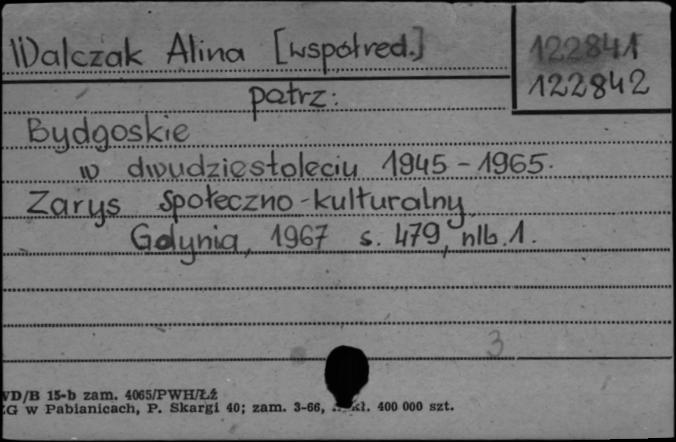 Walczak Alina [współred.]
122841
122842
patrz:
Bydgoskie
w dwudziestoleciu 1945-1965.
Zarys społeczno-kulturalny
Gdynia, 1967 s. 479, nlb. 1.
3
WD/B 15-b zam. 4065/PWH/ŁŹ
ZG w Pabianicach, P. Skargi 40; zam. 3-66, 400 000 szt.